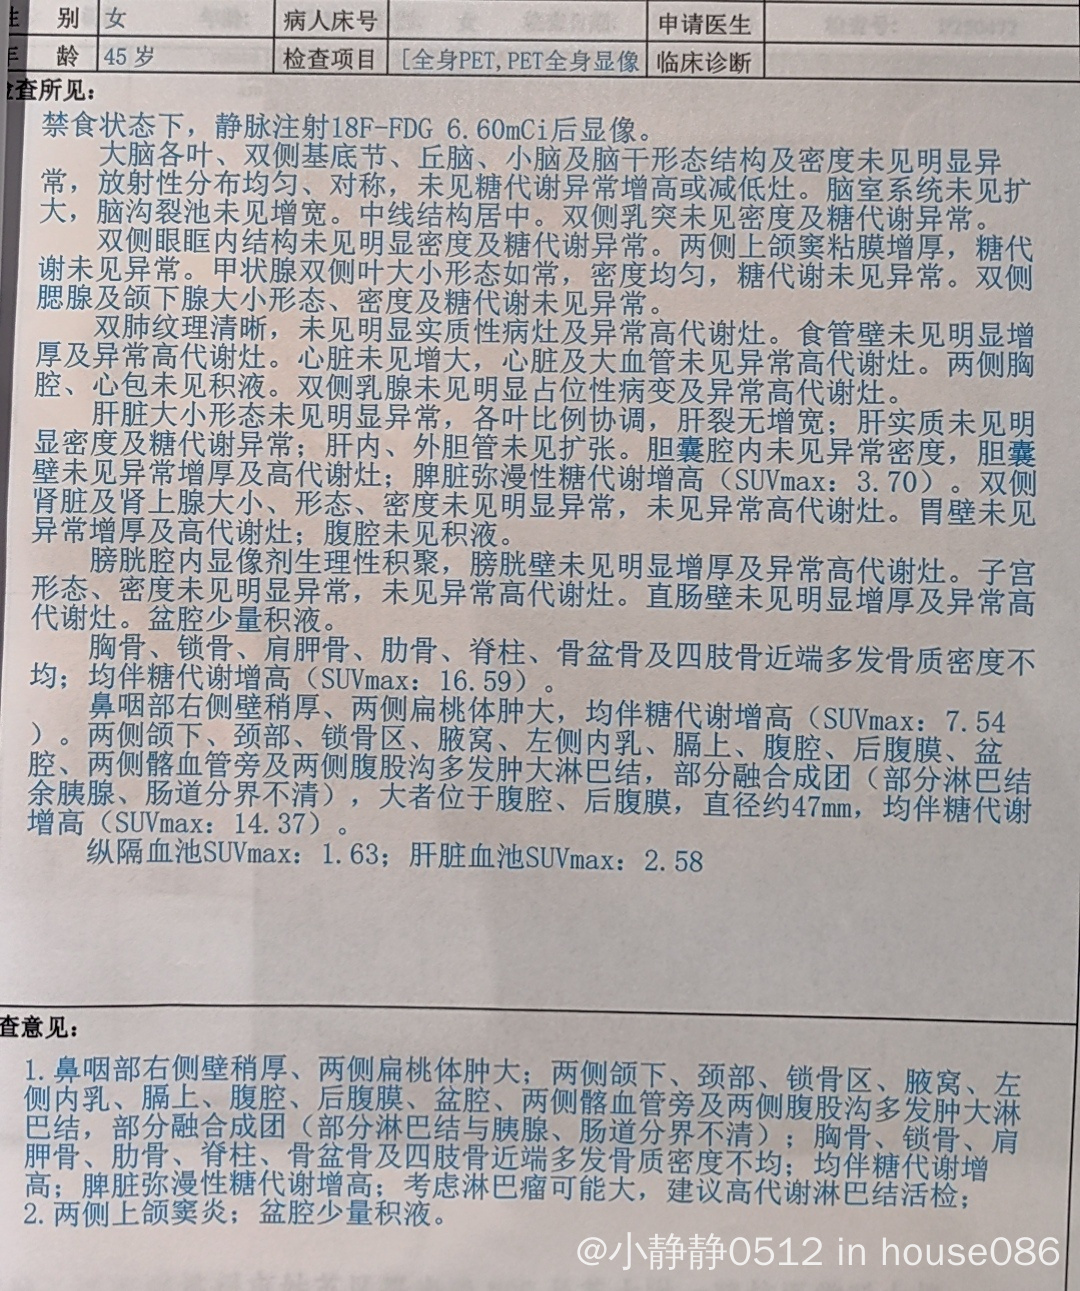 性 别 女 病人床号 申请医生
年 龄 45岁 检查项目 [全身PET,PET全身显像 临床诊断
检查所见：
禁食状态下，静脉注射18F-FDG 6.60mCi后显像。
大脑各叶、双侧基底节、丘脑、小脑及脑干形态结构及密度未见明显异
常，放射性分布均匀、对称，未见糖代谢异常增高或减低灶。脑室系统未见扩
大，脑沟裂池未见增宽。中线结构居中。双侧乳突未见密度及糖代谢异常。
双侧眼眶内结构未见明显密度及糖代谢异常。两侧上颌窦粘膜增厚，糖代
谢未见异常。甲状腺双侧叶大小形态如常，密度均匀，糖代谢未见异常。双侧
腮腺及颌下腺大小形态、密度及糖代谢未见异常。
双肺纹理清晰，未见明显实质性病灶及异常高代谢灶。食管壁未见明显增
厚及异常高代谢灶。心脏未见增大，心脏及大血管未见异常高代谢灶。两侧胸
腔、心包未见积液。双侧乳腺未见明显占位性病变及异常高代谢灶。
肝脏大小形态未见明显异常，各叶比例协调，肝裂无增宽；肝实质未见明
显密度及糖代谢异常；肝内、外胆管未见扩张。胆囊腔内未见异常密度，胆囊
壁未见异常增厚及高代谢灶；脾脏弥漫性糖代谢增高（SUVmax：3.70）。双侧
肾脏及肾上腺大小、形态、密度未见明显异常，未见异常高代谢灶。胃壁未见
异常增厚及高代谢灶；腹腔未见积液。
膀胱腔内显像剂生理性积聚，膀胱壁未见明显增厚及异常高代谢灶。子宫
形态、密度未见明显异常，未见异常高代谢灶。直肠壁未见明显增厚及异常高
代谢灶。盆腔少量积液。
胸骨、锁骨、肩胛骨、肋骨、脊柱、骨盆骨及四肢骨近端多发骨质密度不
均；均伴糖代谢增高（SUVmax：16.59）。
鼻咽部右侧壁稍厚、两侧扁桃体肿大，均伴糖代谢增高（SUVmax：7.54
）。两侧颌下、颈部、锁骨区、腋窝、左侧内乳、膈上、腹腔、后腹膜、盆
腔、两侧髂血管旁及两侧腹股沟多发肿大淋巴结，部分融合成团（部分淋巴结
余胰腺、肠道分界不清），大者位于腹腔、后腹膜，直径约47mm，均伴糖代谢
增高（SUVmax：14.37）。
纵隔血池SUVmax：1.63；肝脏血池SUVmax：2.58
查意见：
1.鼻咽部右侧壁稍厚、两侧扁桃体肿大；两侧颌下、颈部、锁骨区、腋窝、左
侧内乳、膈上、腹腔、后腹膜、盆腔、两侧髂血管旁及两侧腹股沟多发肿大淋
巴结，部分融合成团（部分淋巴结与胰腺、肠道分界不清）；胸骨、锁骨、肩
胛骨、肋骨、脊柱、骨盆骨及四肢骨近端多发骨质密度不均；均伴糖代谢增
高；脾脏弥漫性糖代谢增高；考虑淋巴瘤可能大，建议高代谢淋巴结活检；
2.两侧上颌窦炎；盆腔少量积液。
@小静静0512 in house086